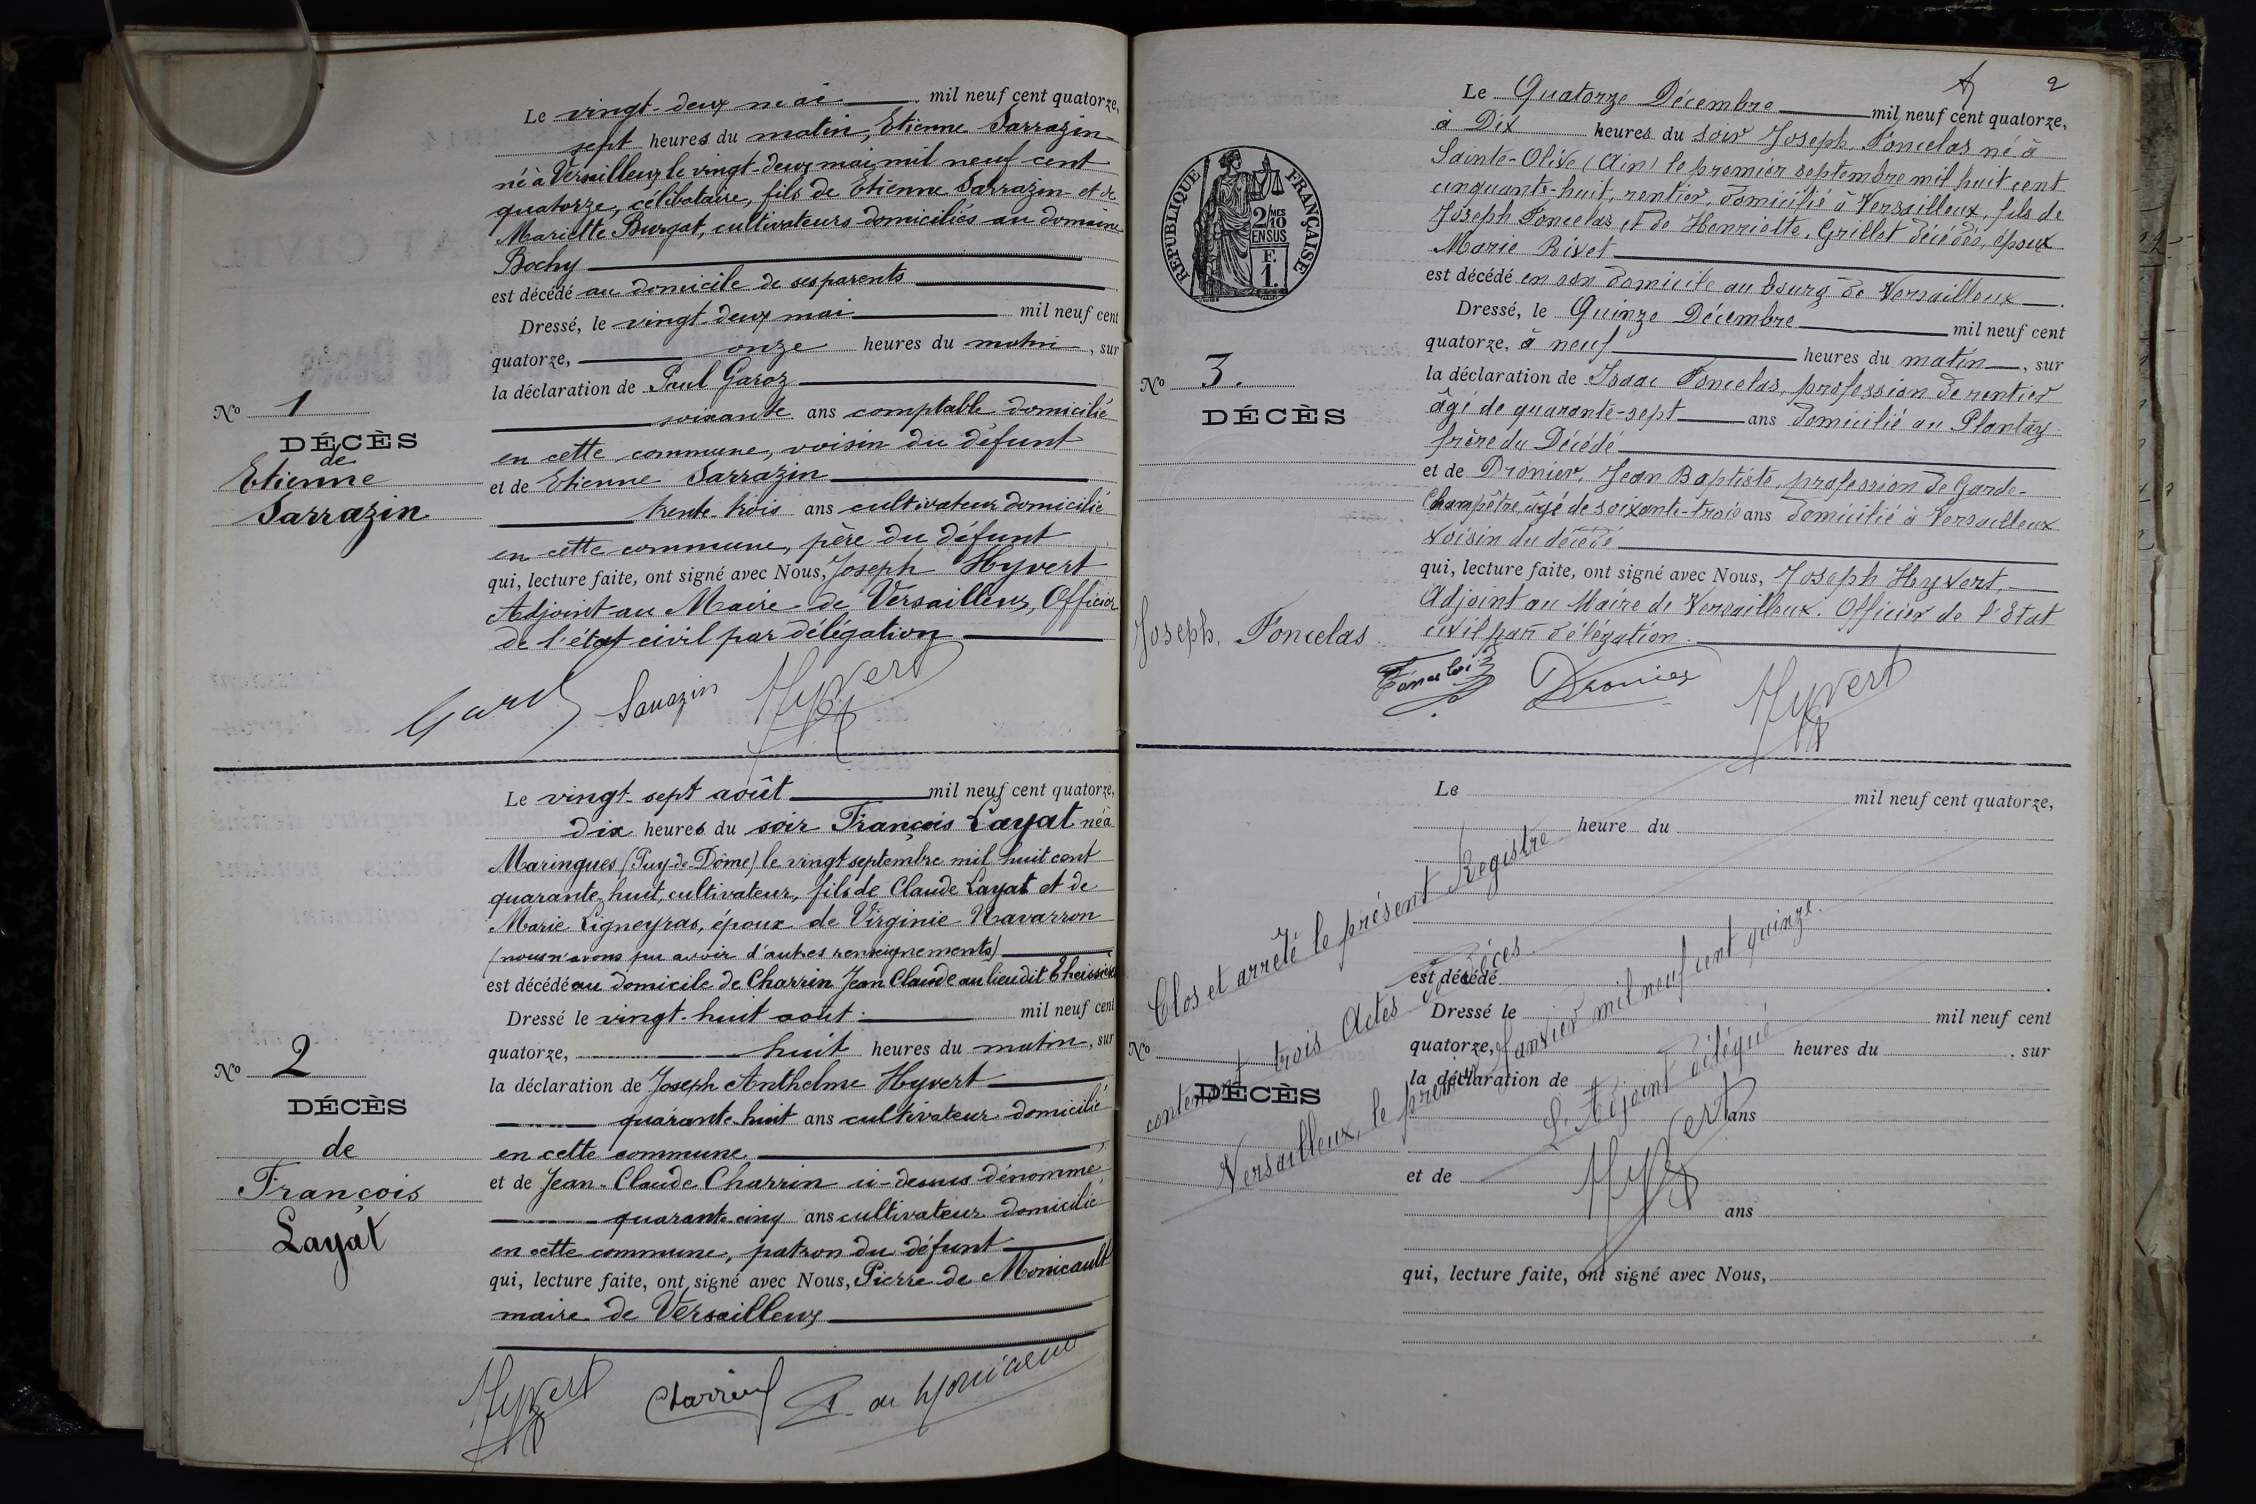 Le vingt-deux mai mil neuf cent quatorze,
sept heures du matin, Etienne Sarrazin
né à Versailleux le vingt-deux mai mil neuf cent
quatorze, célibataire, fils de Etienne Sarrazin et de
Mariette Burgat, cultivateurs domiciliés au domaine
Bochy
est décédé au domicile de ses parents
Dressé, le vingt-deux mai mil neuf cent
quatorze, onze heures du matin, sur
la déclaration de Paul Garoz
soixante ans comptable domicilié
en cette commune, voisin du défunt
et de Etienne Sarrazin
trente-trois ans cultivateur domicilié
en cette commune, père du défunt
qui, lecture faite, ont signé avec Nous, Joseph Hyvert
Adjoint au Maire de Versailleux, Officier
de l'état civil par délégation
Sarrazin Hyvert
No 1
DÉCÈS
de
Etienne
Sarrazin
Le vingt-sept août mil neuf cent quatorze,
dix heures du soir François Layat né à
Maringues (Puy-de-Dôme) le vingt septembre mil huit cent
quarante-huit, cultivateur, fils de Claude Layat et de
Marie Ligneyras, époux de Virginie Navarron
(nous n'avons pu avoir d'autres renseignements)
est décédé au domicile de Charrin Jean Claude au lieu dit
Dressé le vingt-huit août mil neuf cent
quatorze, huit heures du matin, sur
la déclaration de Joseph Anthelme Hyvert
quarante-huit ans cultivateur domicilié
en cette commune
et de Jean-Claude Charrin ci-dessus dénommé
quarante-cinq ans cultivateur domicilié
en cette commune, patron du défunt
qui, lecture faite, ont signé avec Nous, Pierre de Monicault
maire de Versailleux
Hyvert Charrin P. de Monicault
No 2
DÉCÈS
de
François
Layat
2
Le Quatorze Décembre mil neuf cent quatorze,
à Dix heures du soir Joseph, Foncelas né à
Sainte-Olive (Ain) le premier septembre mil huit cent
cinquante-huit, rentier, domicilié à Versailleux, fils de
Joseph Foncelas et de Henriette, Grillet décédés, époux
Marie Rivet
est décédé en son domicile au bourg de Versailleux
Dressé, le Quinze Décembre mil neuf cent
quatorze, à neuf heures du matin, sur
la déclaration de Isaac Foncelas, profession de rentier
âgé de quarante-sept ans domicilié au Plantay
frère du Décédé
et de Dronier, Jean Baptiste, profession de Garde-
Champêtre âgé de soixante-trois ans domicilié à Versailleux
voisin du décédé
qui, lecture faite, ont signé avec Nous, Joseph Hyvert,
Adjoint au Maire de Versailleux. Officier de l'Etat
civil par délégation.
Dronier Hyvert
RÉPUBLIQUE FRANÇAISE
2/10MES
EN SUS
F.
1.
No 3.
DÉCÈS
Joseph, Foncelas
Le mil neuf cent quatorze,
heure du
est décédé
Dressé le mil neuf cent
quatorze, heures du , sur
la déclaration de
ans
et de
ans
qui, lecture faite, ont signé avec Nous,
No
DÉCÈS
Clos et arrêté le présent Registre
contenant trois Actes de Décès
Versailleux, le premier Janvier mil neuf cent quinze.
L'Adjoint délégué
Hyvert